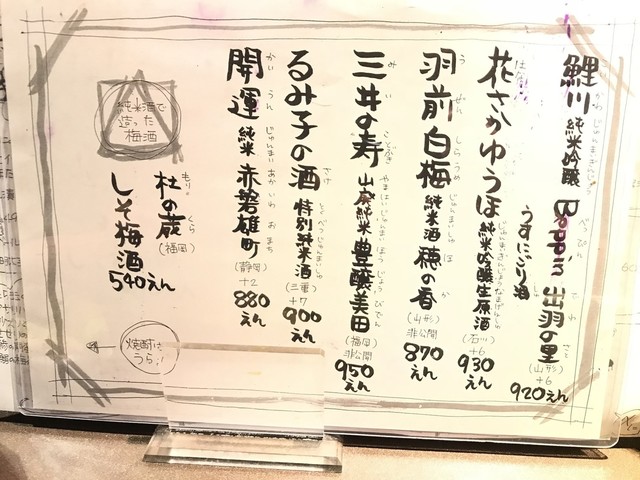 鯉川 純米吟醸 Beppin 出羽の里
うすにごり酒
(山形)
+6
920えん
花さかゆうほ 純米吟醸生原酒
(石川)
+6
930えん
羽前白梅 純米酒 穂の香
(山形)
非公開
870えん
三井の寿 山廃純米 豊醸美田
(福岡)
非公開
950えん
るみ子の酒 特別純米酒
(三重)
+7
900えん
開運 純米 赤磐雄町
(静岡)
+2
880えん
純米酒で
造った
梅酒
杜の蔵
(福岡)
しそ梅酒
540えん
焼酎は
うら!